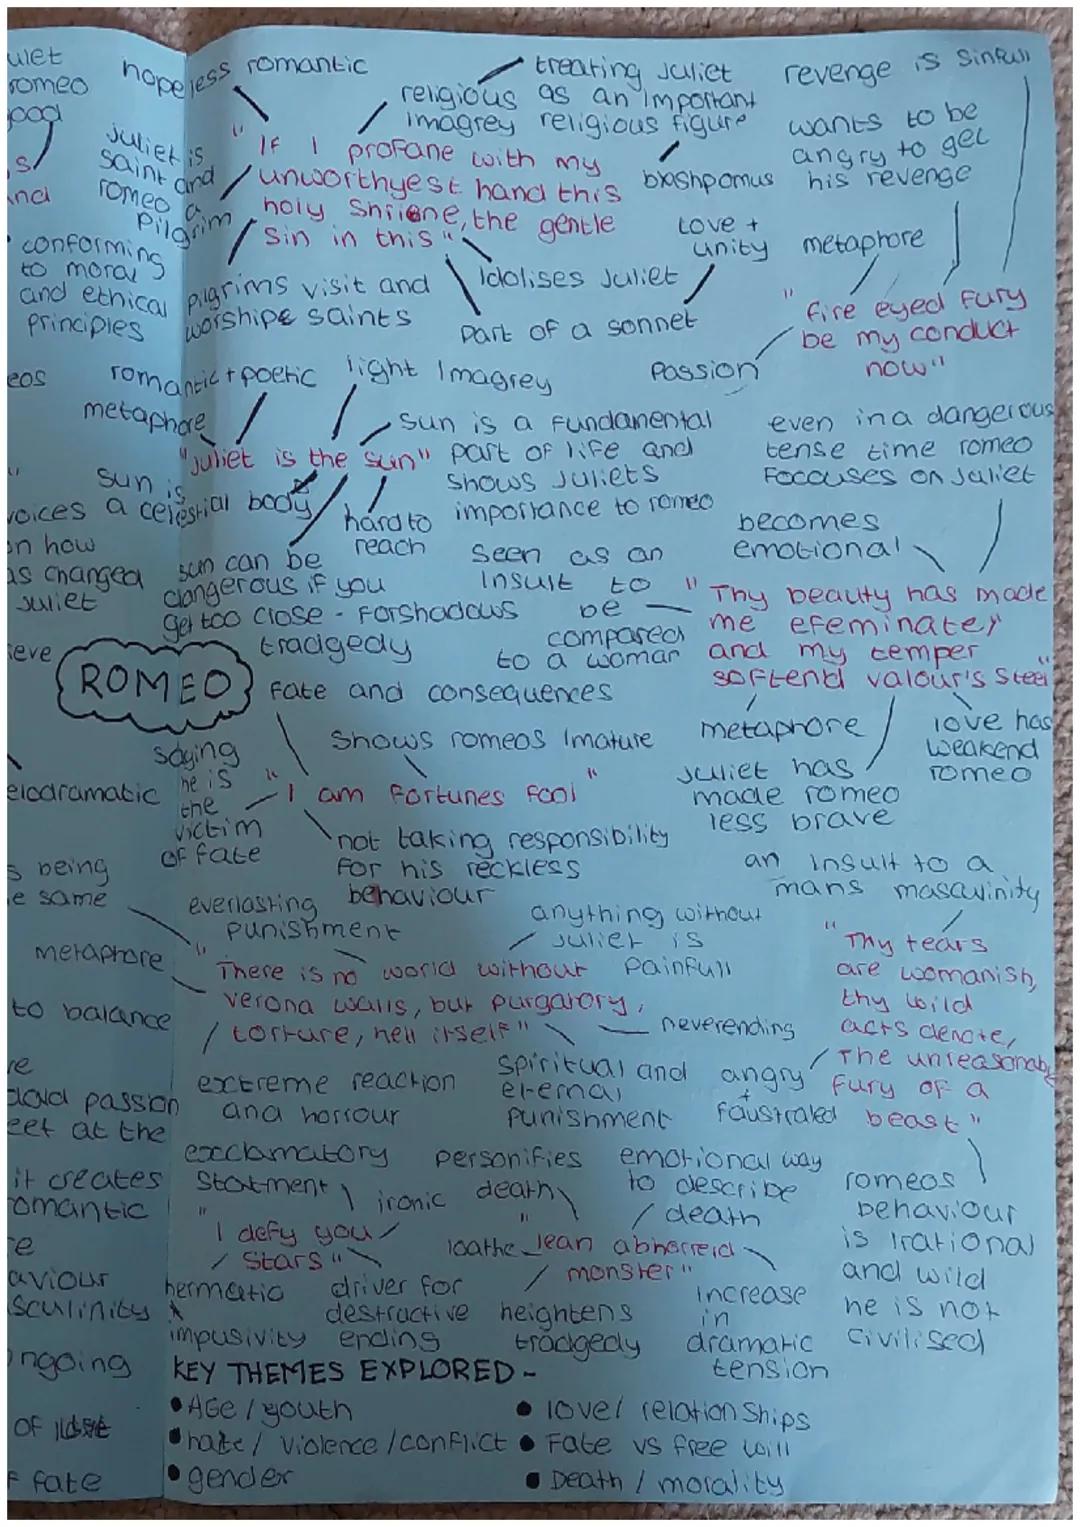 hopeless romantic
religious imagrey
treating Juliet as an important religious figure
blashpomus
Juliet is saint and romeo a pilgrim
"If I profane with my
unworthyest hand this
holy Shriene, the gentle
Sin in this"
pilgrims visit and
worshipe saints
Idolises Juliet
part of a sonnet
Love +
unity
revenge is Sinfull
wants to be
angry to get
his revenge
metaphore
"fire eyed fury
be my conduct
now"
Passion
ulet
romeo
good
s/
and
conforming
to moral
and ethical
principles
eos
romantic + poetic
light Imagrey
metaphore
"Juliet is the sun"
sun is a fundamental
part of life and
shows Juliets
importance to romeo
sun is
a celestial body
hard to
reach
sun can be
dangerous if you
get too close - forshadows
tradgedy
voices
on how
as changed
Juliet
ieve
even in a dangerous
tense time romeo
Foccuses on Juliet
becomes
emotional
seen as an
insult to
be
compared
to a woman
"Thy beauty has made
me efeminatey
and my temper
softend valour's steel"
metaphore
Juliet has
made romeo
less brave
love has
weakend
romeo
ROMEO
Fate and consequences
Shows romeos Imature
saying
he is
the
victim
of fate
"I am fortunes fool"
not taking responsibility
for his reckless
behaviour
elodramatic
s being
e same
everlasting
punishment
anything without
Juliet is
painfull
metaphore
"There is no world without
verona walls, but purgatory,
torture, hell itself"
neverending
extreme reaction
and horrour
spiritual and
eternal
punishment
to balance
re
passion
eet at the
it creates
omantic
re
aviour
sculinity
ongoing
of
f fate
an insult to a
mans mascuinity
"Thy tears
are womanish,
thy wild
acts denote,
The unreasonable
fury of a
beast"
angry
+
faustraled
romeos
behaviour
is Irational
and wild
he is not
civilised
excclamatory
Statment
ironic
"I defy you
Stars"
hermatic
impusivity
driver for
destructive
ending
personifies
death
emotional way
to describe
death
loathe
"lean abhorreid
monster"
heightens
tradgedy
increase
in
dramatic
tension
KEY THEMES EXPLORED -
• AGE / youth
• hate / violence / conflict
• gender
• love / relationships
• Fate vs free will
• Death / morality